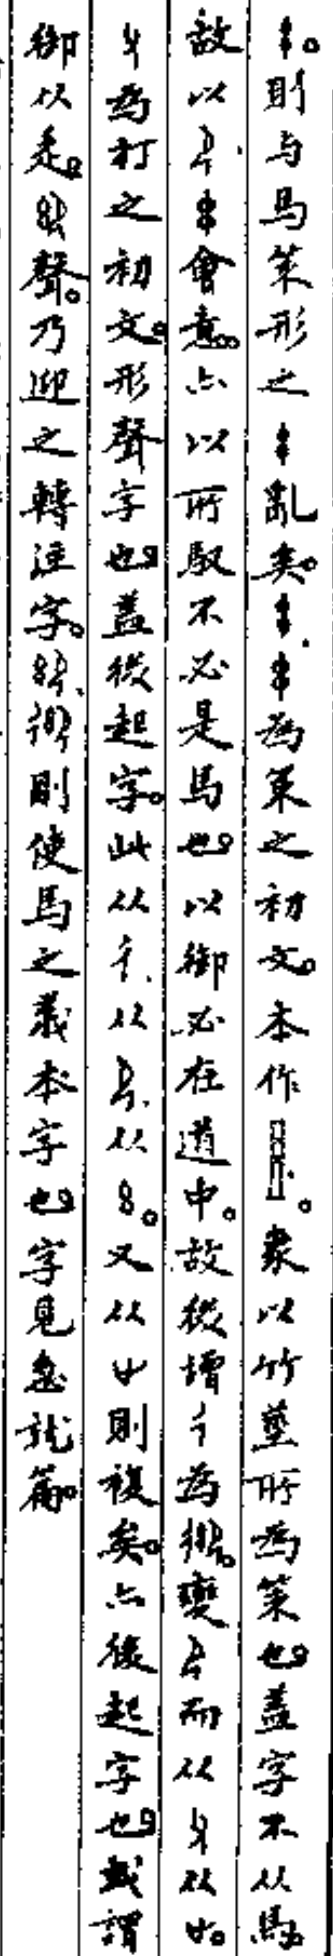 。則与馬策形之亂矣。為策之初文。本作。象以竹莖所為策也。蓋字不从馬。
故以會意。亦以所馭不必是馬也。以御必在道中。故後增彳為。變而从从。
為打之初文。形聲字也。蓋後起字。此从彳。从。从。又从則複矣。亦後起字也。或謂
御从辵。聲。乃迎之轉注字。則使馬之義本字也。字見急就篇。